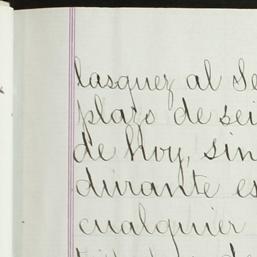 lasquez al Se
plazo de sei
de hoy, sin
durante es
cualquier